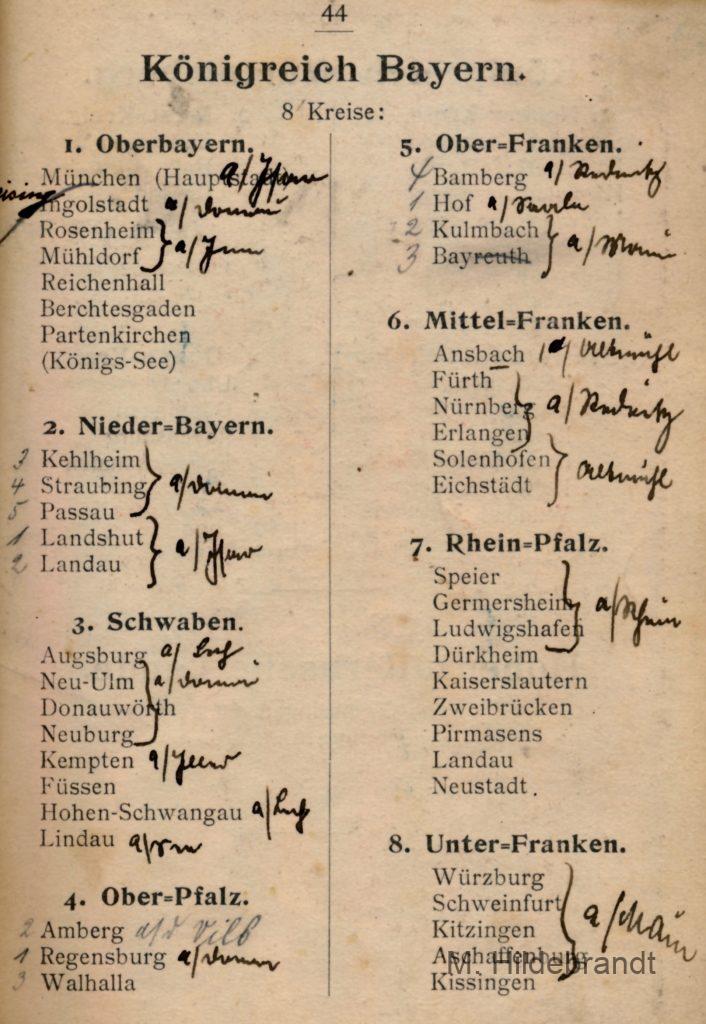 44
Königreich Bayern.
8 Kreise:
1. Oberbayern.
München (Hauptstadt) a/Isar
Ingolstadt a/Donau
Rosenheim
Mühldorf a/Inn
Reichenhall
Berchtesgaden
Partenkirchen
(Königs-See)
2. Nieder=Bayern.
3 Kehlheim
4 Straubing a/Donau
5 Passau
1 Landshut
2 Landau a/Isar
3. Schwaben.
Augsburg a/Lech
Neu-Ulm a/Donau
Donauwörth
Neuburg
Kempten a/Iller
Füssen
Hohen-Schwangau a/Lech
Lindau
4. Ober=Pfalz.
2 Amberg a/d Vils
1 Regensburg a/Donau
3 Walhalla
5. Ober=Franken.
4 Bamberg a/Rednitz
1 Hof a/Saale
2 Kulmbach
3 Bayreuth a/Main
6. Mittel=Franken.
Ansbach a/Altmühl
Fürth
Nürnberg a/Rednitz
Erlangen
Solenhofen
Eichstädt Altmühl
7. Rhein=Pfalz.
Speier
Germersheim a/Rhein
Ludwigshafen
Dürkheim
Kaiserslautern
Zweibrücken
Pirmasens
Landau
Neustadt.
8. Unter=Franken.
Würzburg
Schweinfurt
Kitzingen a/Main
Aschaffenburg
Kissingen
M. Hildebrandt